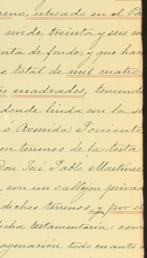 reno, ubicado en el Pa
mide treinta y seis m
enta de fondo; y que han
e total de mil cuatro
os cuadrados, teniendo
donde linda son la s
é Avenida Poniente
on terrenos de la testa
Don José Pablo Martínez
, con un callejón privad
dichos terrenos, y por el
dicha testamentaria: com
agenación todo cuanto a